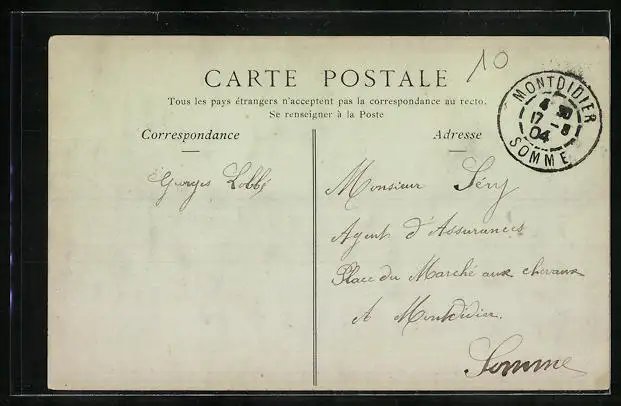 10
CARTE POSTALE
Tous les pays étrangers n'acceptent pas la correspondance au recto.
Se renseigner à la Poste
MONTDIDIER
4 30
17 - 8
04
SOMME
Correspondance
Georges
Adresse
Monsieur Séry
Agent d'Assurances
Place du Marché aux chevaux
A Montdidier.
Somme